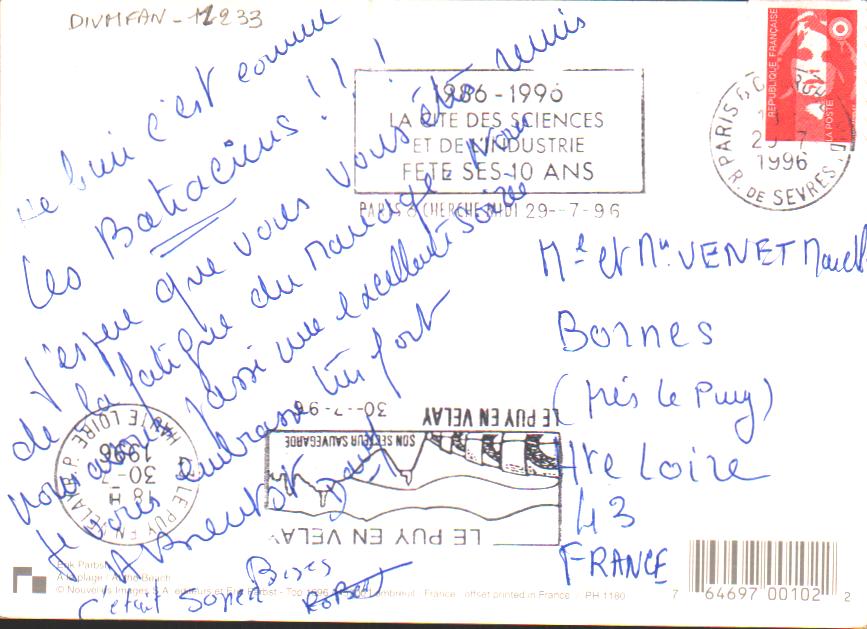 DIVMFAN - 11233
c'est comme
Les Batraciens !!!
J'espère que vous vous êtes remis
de la fatigue du Mariage. Nous
nous avons passé une excellente soirée
Je vous embrasse très fort
A Bientôt
C'était Super Bises
Robert
1986 - 1996
LA CITE DES SCIENCES
ET DE L'INDUSTRIE
FETE SES 10 ANS
PARIS 6 CHERCHE MIDI 29-7-96
REPUBLIQUE FRANÇAISE
LA POSTE
PARIS 6
29-7
1996
R. DE SEVRES
Mel et Mr VENET Marcel
Bornes
(près le Puy)
Hte Loire
43
FRANCE
LE PUY EN VELAY
30-7-96
SON SECTEUR SAUVEGARDE
LE PUY EN VELAY
LE PUY EN VELAY R.P.
18 H
30-7
1996
HAUTE LOIRE
Erik Parbst
A la plage / At the Beach
© Nouvelles Images S.A. éditeurs et Erik Parbst - Top 1996 Lombreuil - France - offset printed in France / PH 1180
7 64697 00102 2